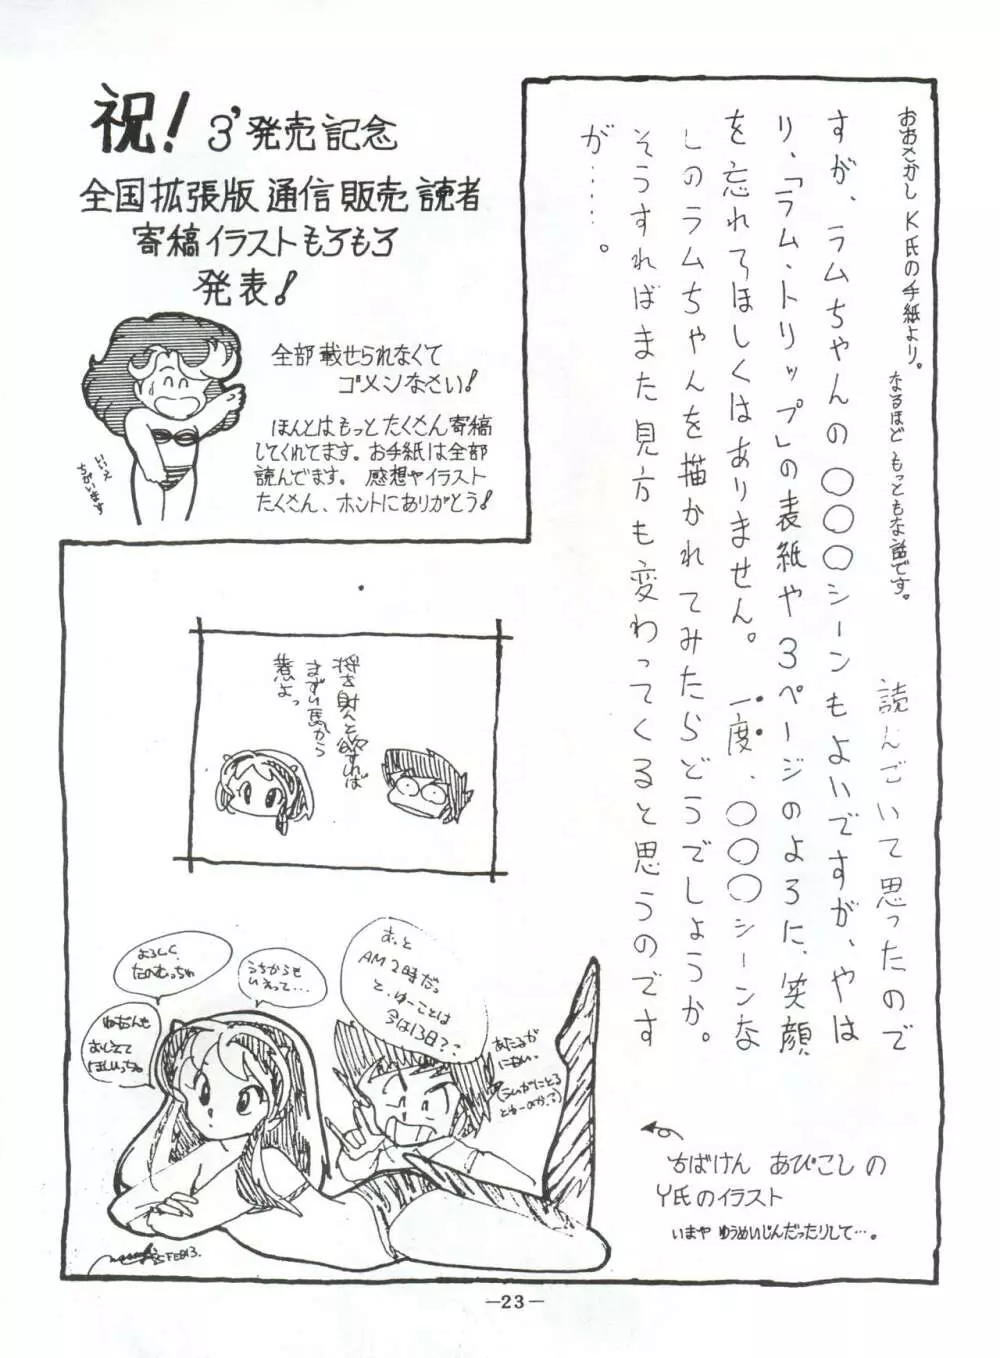 祝! 3'発売記念
全国拡張版 通信販売 読者
寄稿イラストもろもろ
発表!
全部載せられなくて
ゴメンなさい!
ほんとはもっと たくさん寄稿
してくれてます。お手紙は全部
読んでます。 感想やイラスト
たくさん、ホントにありがとう!
いいえ
ちがいます
おおさかし K氏の手紙より。 なるほど もっともな話です。
読んでいて思ったので
すが、ラムちゃんの〇〇〇シーンもよいですが、やは
り、「ラム・トリップ」の表紙や3ページのように、笑顔
を忘れてほしくはありません。 一度、〇〇〇シーンな
しのラムちゃんを描かれてみたらどうでしょうか。
そうすればまた見方も変わってくると思うのです
が……。
将を射んと欲すれば
まずい馬から
よっ
よろしく
たのむっちゃ
うちからも
いえって…
おっと
AM2時だっ
と、ゆーことは
今は13日?
おしえて
ほしいっちゃ
あたるが
にない
ちばけん あびこし の
Y氏のイラスト
いまや ゆうめいじんだったりして…。
FEB13.
—23—